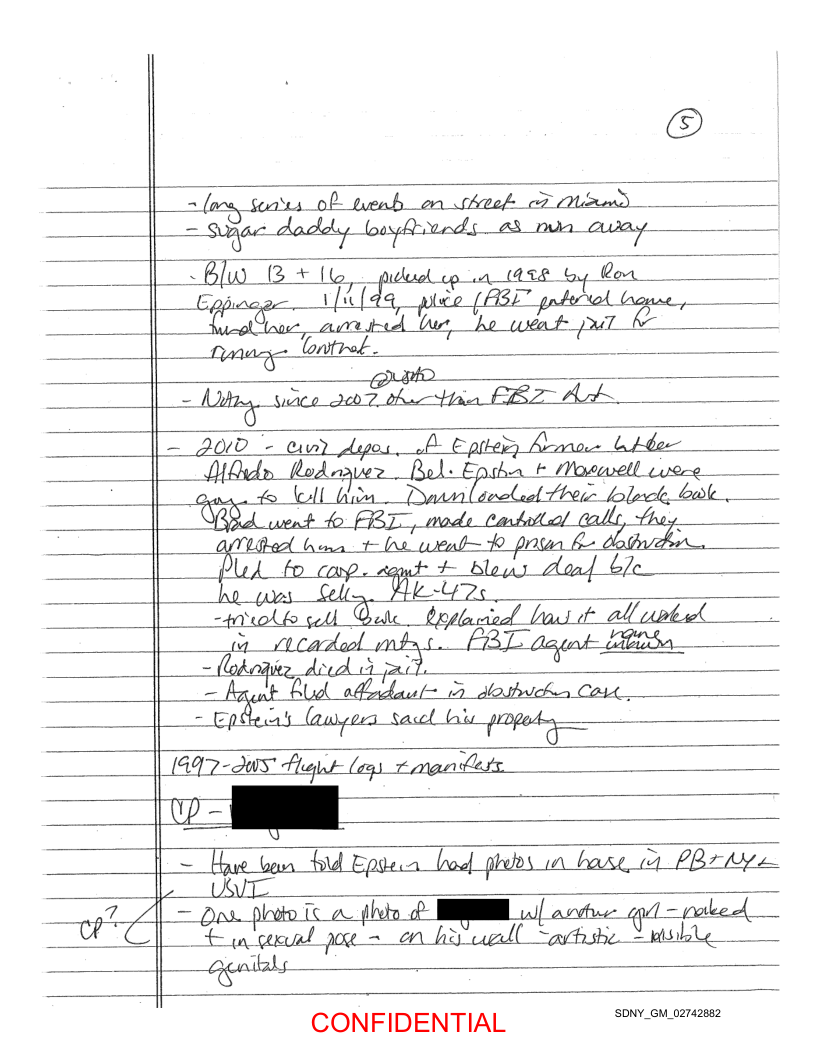 5
- long series of events on street in Miami
- sugar daddy boyfriends as run away
- B/W 13 + 16, picked up in 1998 by Ron
Eppinger. 1/11/99, police / FBI entered home,
found her, arrested her, he went jail for
running
- Nothing since 2007 other than FBI
- 2010 - civil depos. of Epstein former butler
Alfredo Rodriguez. Bel. Epstein + Maxwell were
going to kill him. Downloaded their black book.
Brad went to FBI, made controlled calls, they
arrested him + he went to prison for obstruction.
Pled to coop. agmt + blew deal b/c
he was selling AK-47s.
- tried to sell book. Explained how it all worked
in recorded mtgs. FBI agent name
unknown
- Rodriguez died in jail.
- Agent filed affadavit in obstruction case.
- Epstein's lawyers said his property
1997-2005 flight logs + manifests
CP -
- Have been told Epstein had photos in house in PB + NY +
USVI
CP?
- One photo is a photo of w/ another girl - naked
+ in sexual pose - on his wall - artistic - visible
genitals
CONFIDENTIAL
SDNY_GM_02742882